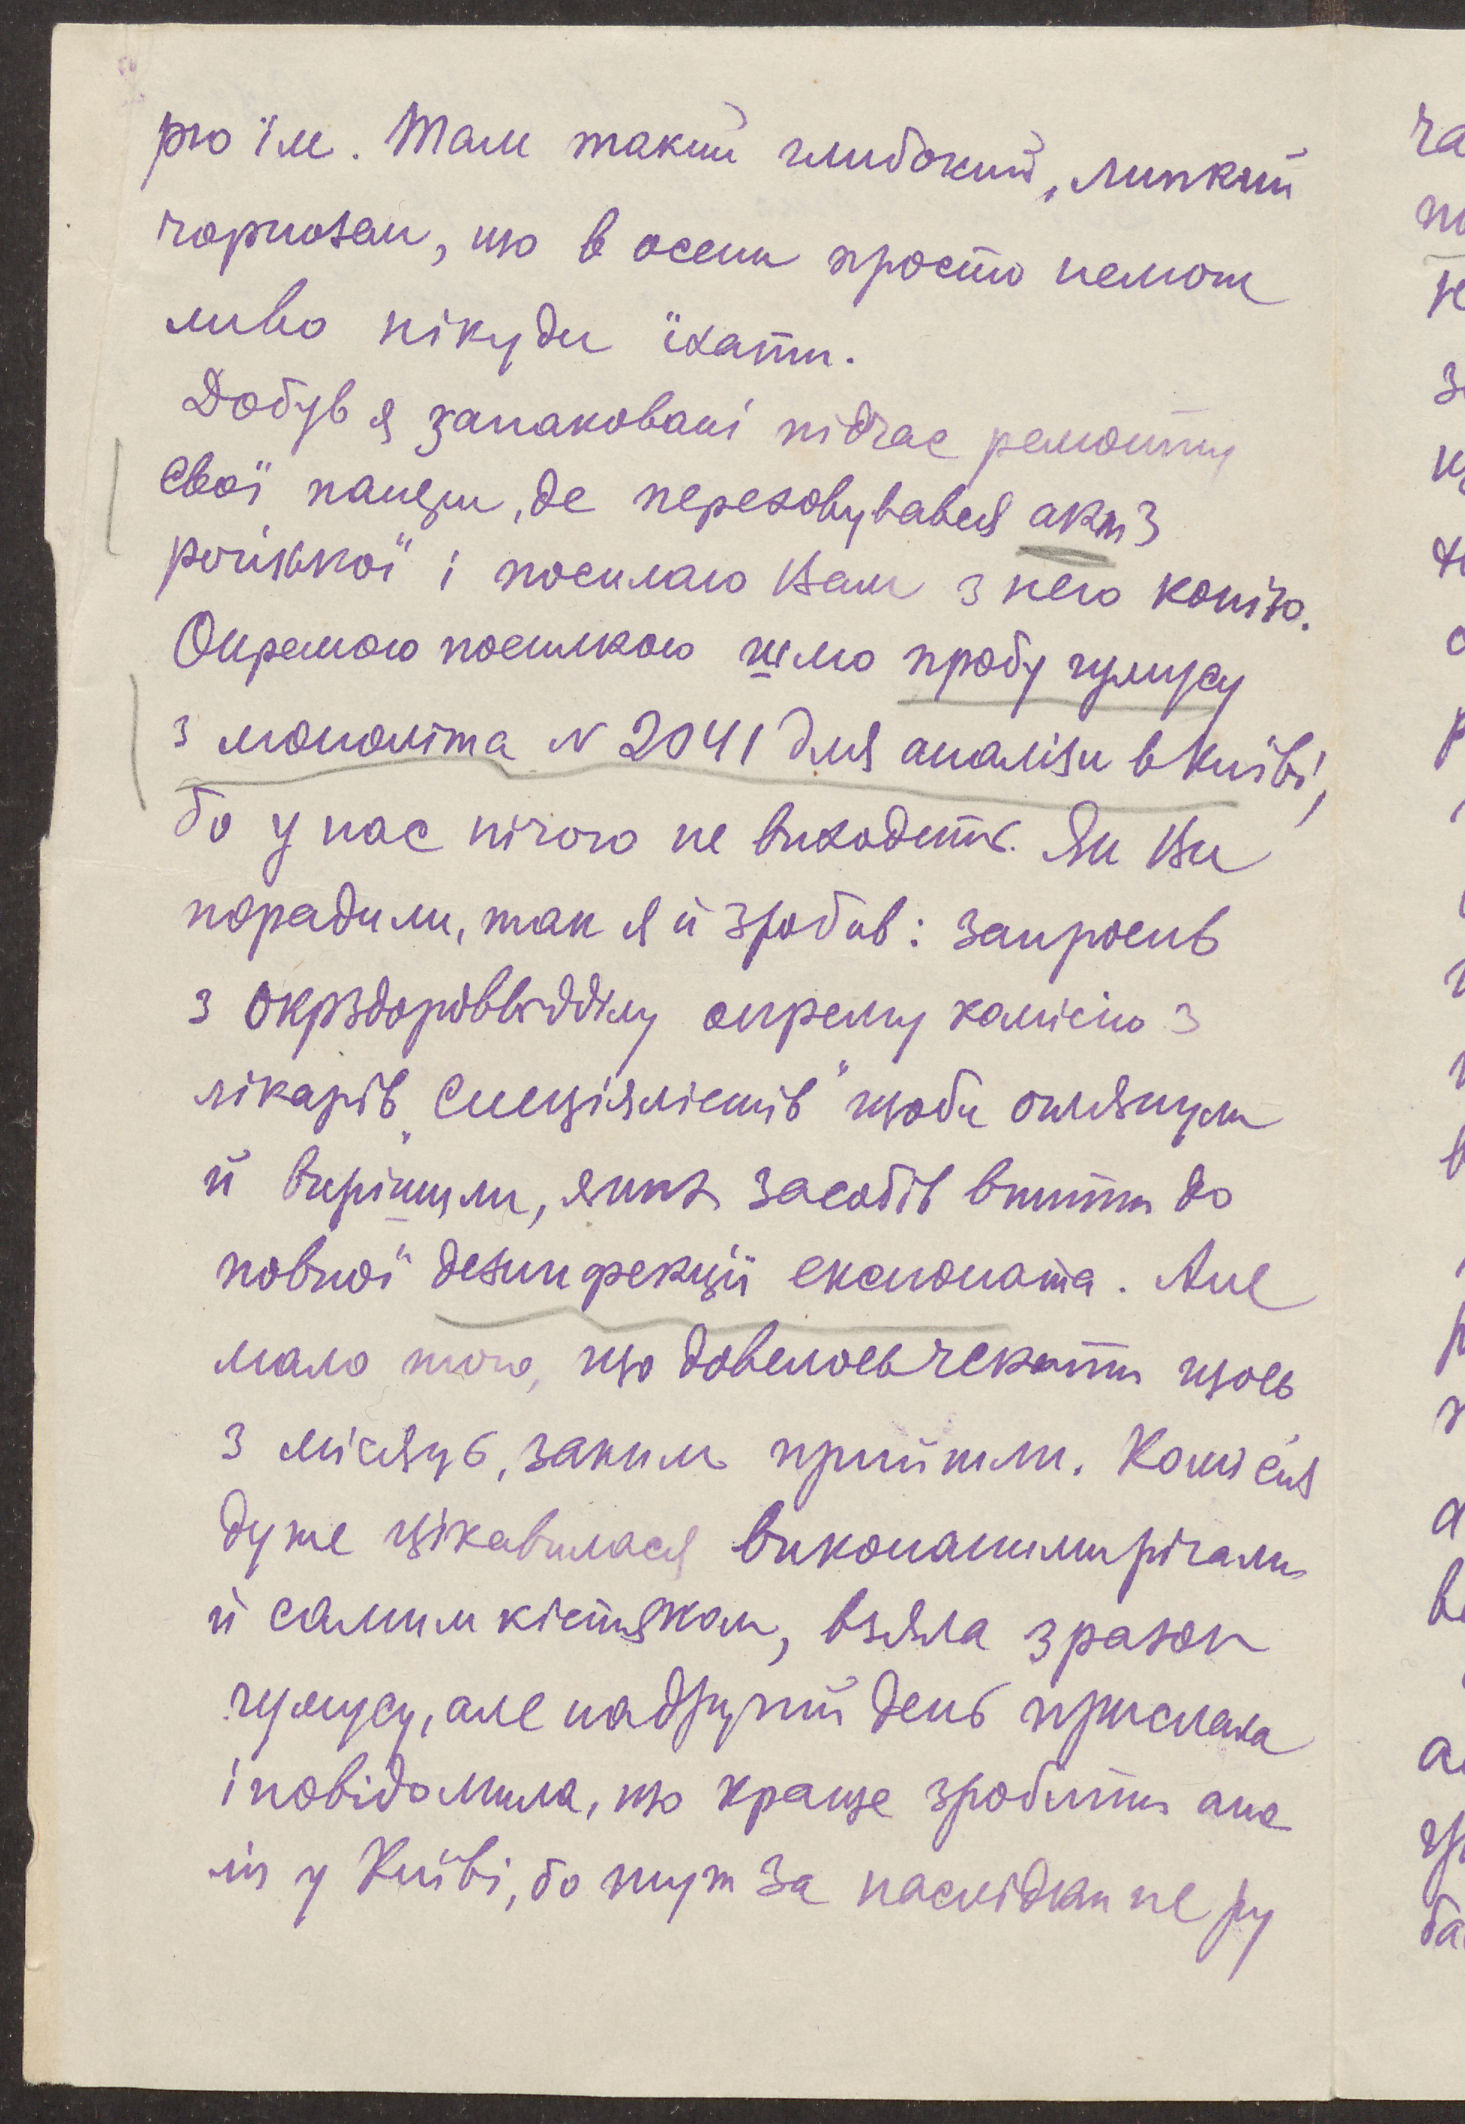 рю їм. Там такий глибокий, липкий
чорнозем, що в осени просто немож
ливо нікуди їхати.
Добув я запаковані підчас ремонту
свої папери, де переховувався акт з
річської і посилаю Вам з него копію.
Окремою посилкою шлю пробу гумусу
з моноліта N 2041 для аналізи в Київі,
бо у нас нічого не виходеть. Як Ви
порадили, так я й зробив: запросив
з Окрздороввідділу окрему комісію з
лікарів „Спеціялістів" щоби оглянули
й вирішили, яких засобів вжити до
повної дезинфекції експоната. Але
мало того, що довелось чекати щось
з місяць, заким прийшли. Комісія
дуже цікавилася викопаними річами
й самим кістяком, взяла зразок
гумусу, але надругий день прислала
і повідомила, що краще зробити ана
ліз у Київі, бо тут за наслідки не ру